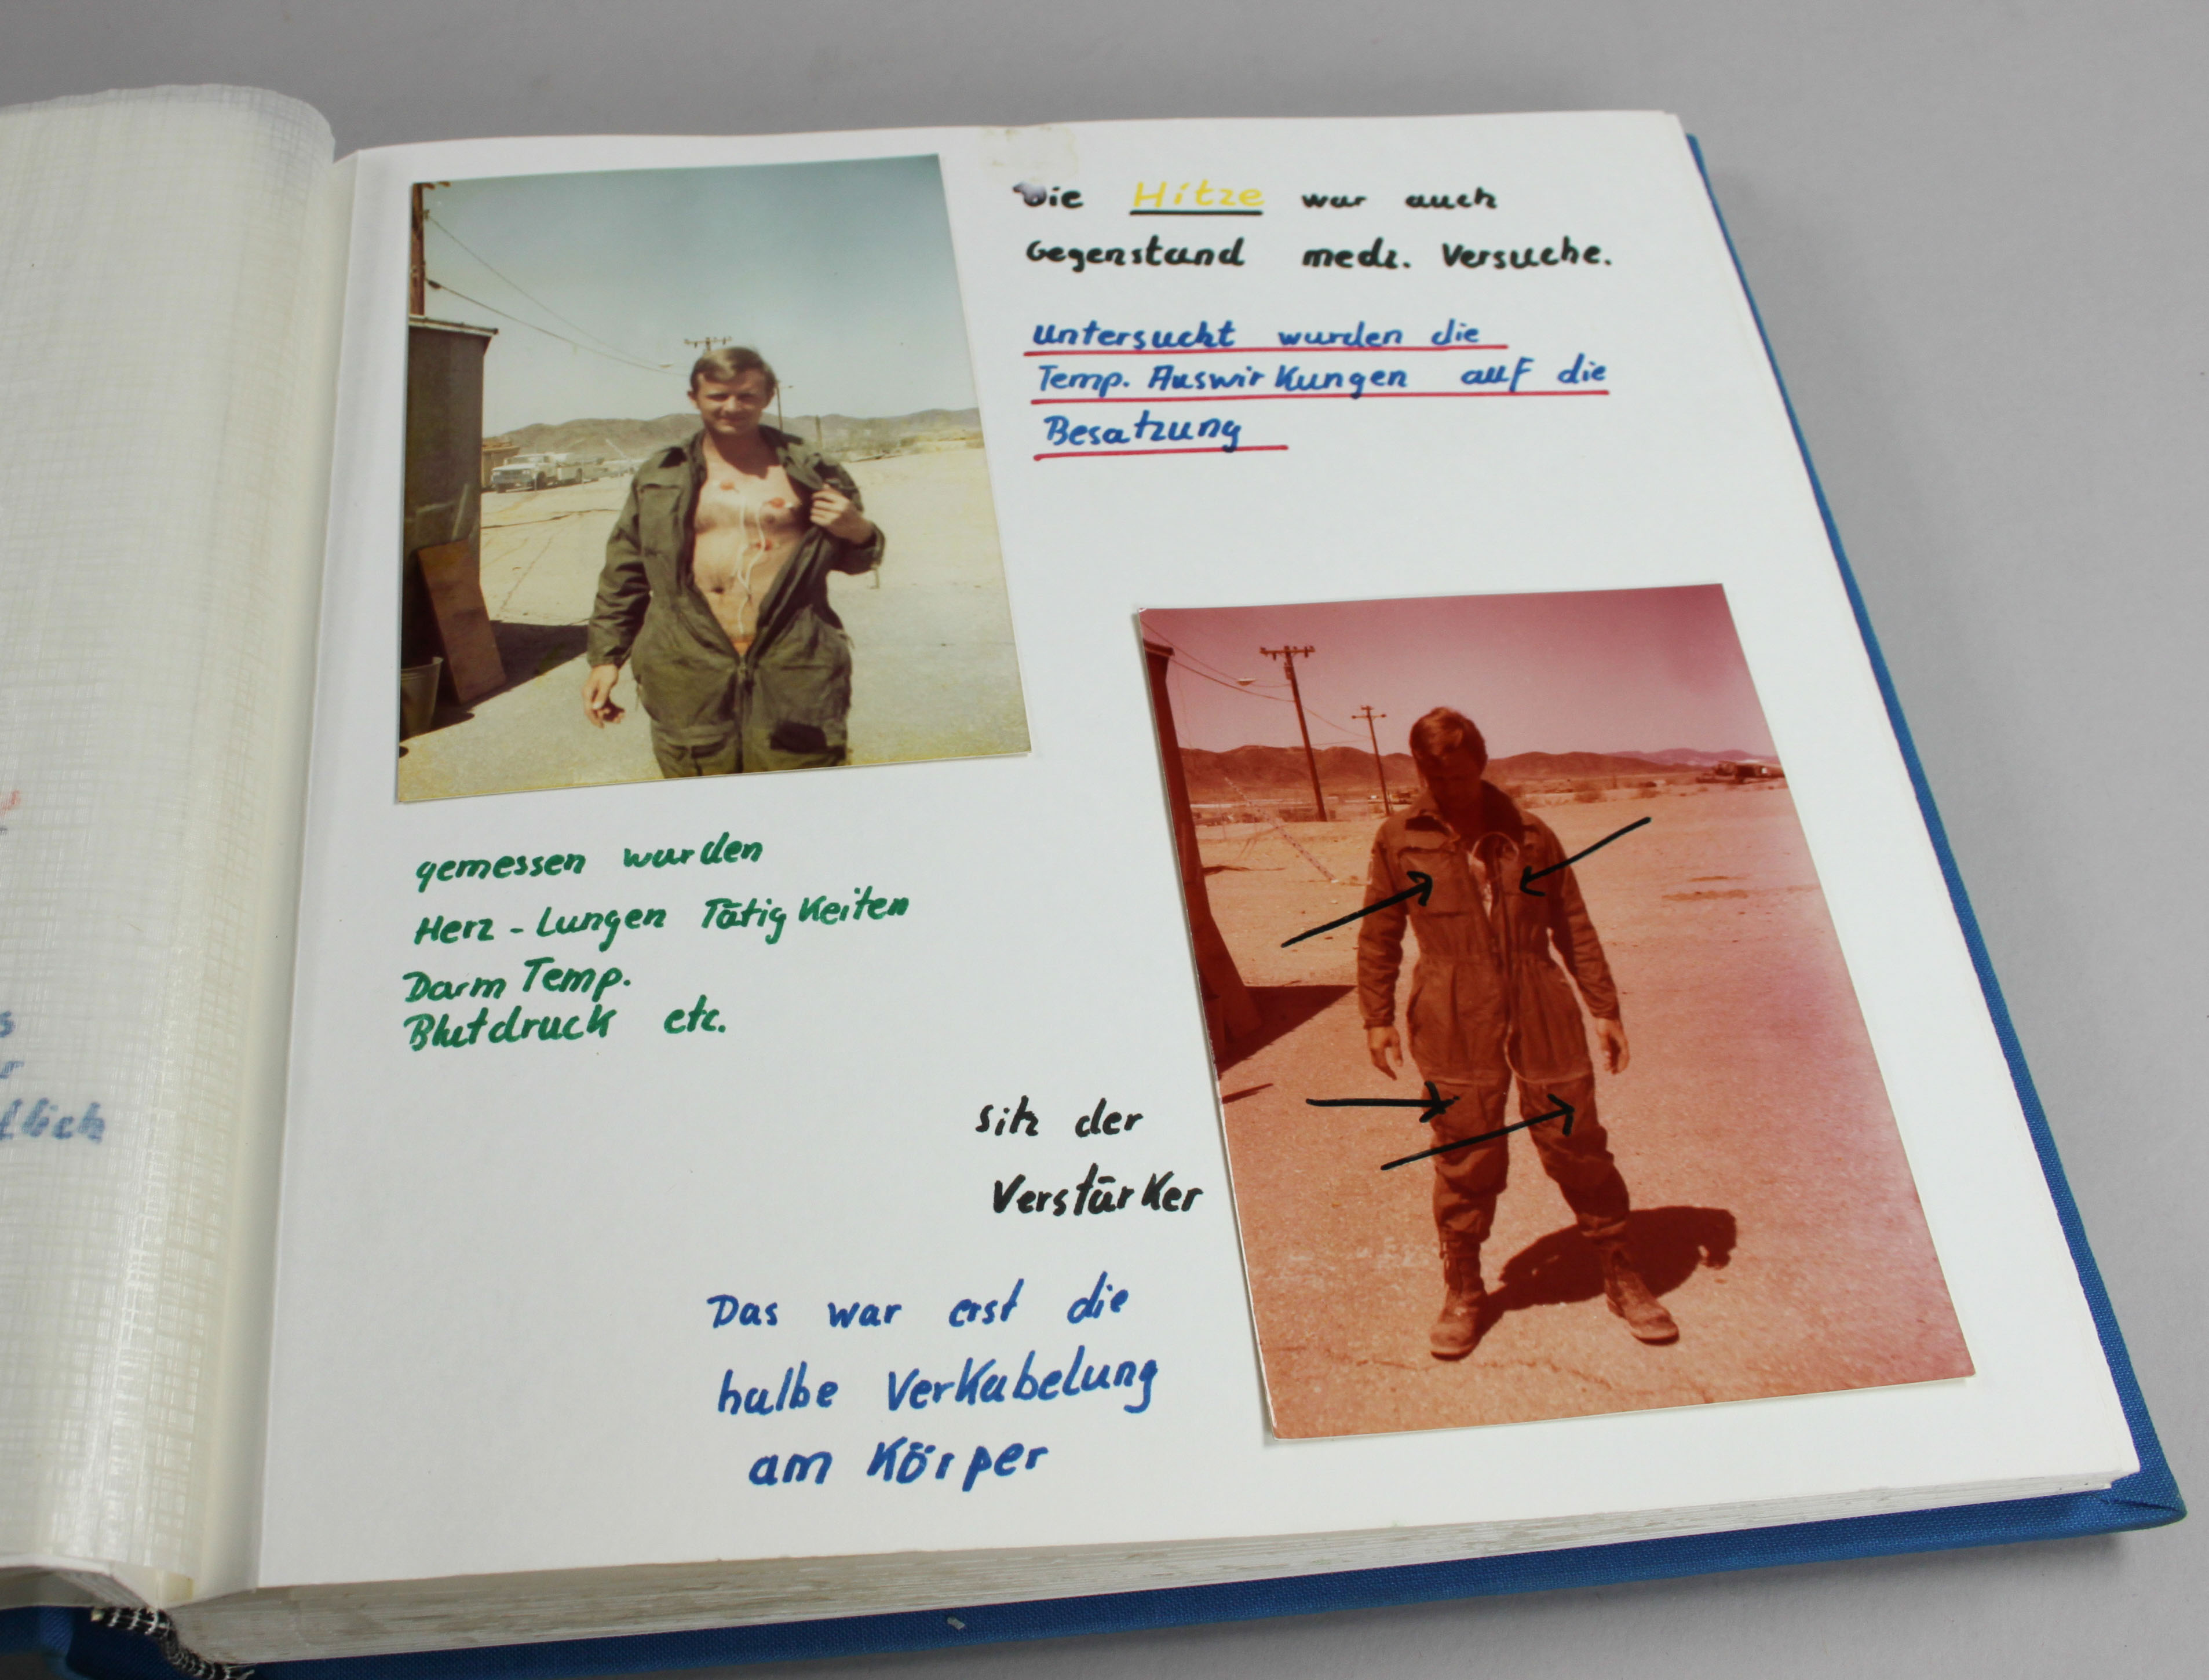 Die Hitze war auch
Gegenstand medz. Versuche.
Untersucht wurden die
Temp. Auswirkungen auf die
Besatzung
gemessen wurden
Herz - Lungen Tätigkeiten
Darm Temp.
Blutdruck etc.
Sitz der
Verstärker
Das war erst die
halbe Verkabelung
am Körper